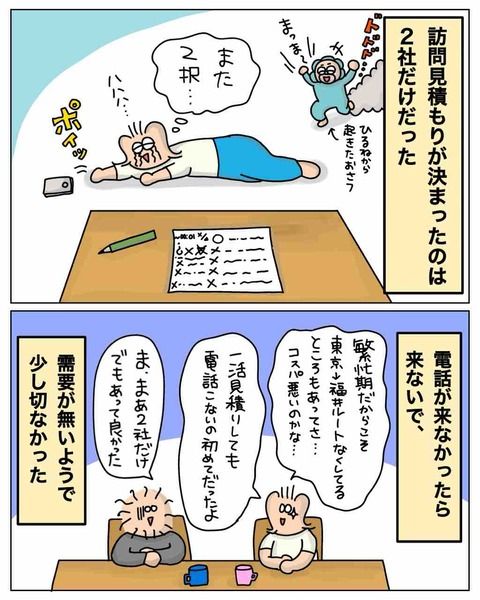 訪問見積もりが決まったのは
2社だけだった
ドドド
まっまー
ひるねから
起きたおさっ
また
2択…
ハハハ…
ポイッ
電話が来なかったら
来ないで、
繁忙期だからこそ
東京↔福井ルートなくしてる
ところもあってさ…
コスパ悪いのかな…
一活見積りしても
電話こないの初めてだったよ
ま、まあ2社だけ
でもあって良かった
需要が無いようで
少し切なかった